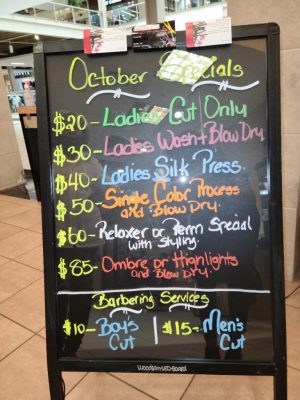 October Specials
$20- Ladies Cut Only
$30- Ladies Wash+Blow Dry
$40- Ladies Silk Press
$50- Single Color Process
and Blow Dry.
$60- Relaxer or Perm Special
with styling.
$85- Ombre or Highlights
and Blow Dry.
Barbering Services
$10- Boy's Cut
$15- Men's Cut